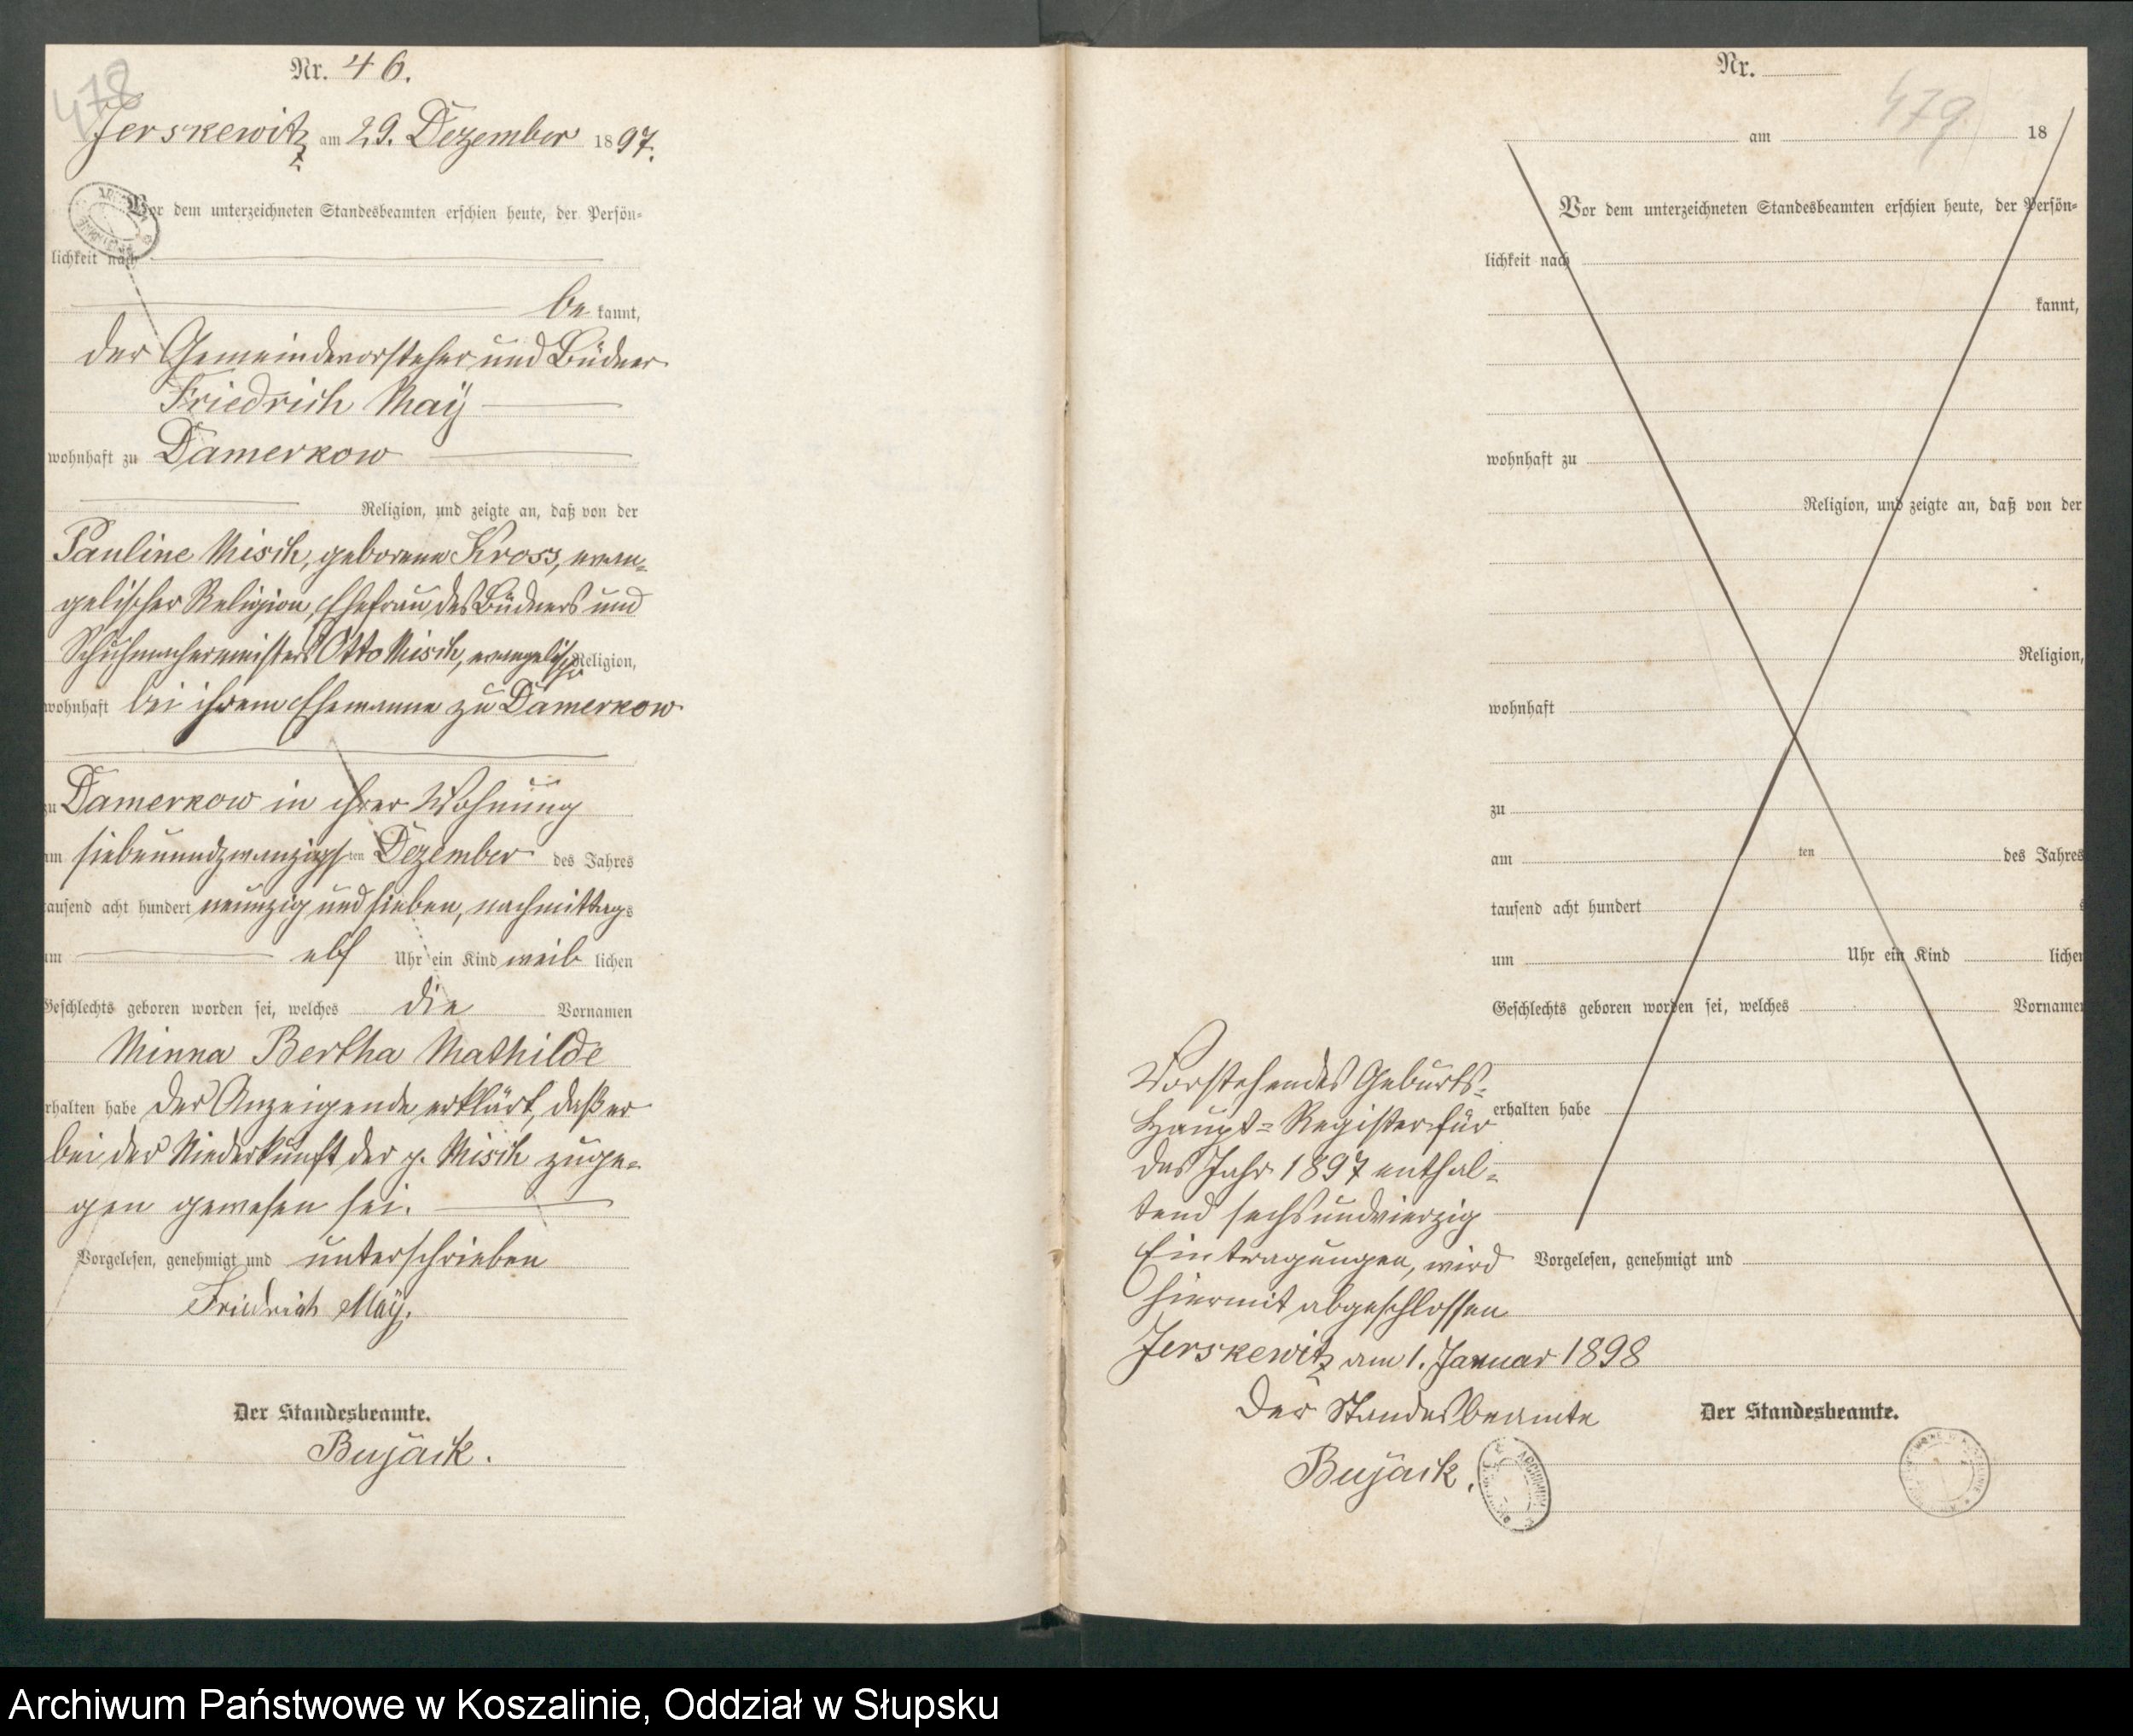 478
Nr. 46.
Jerskewitz am 29. Dezember 1897.
Vor dem unterzeichneten Standesbeamten erschien heute, der Persön-
lichkeit nach
be kannt,
der Gemeindevorsteher und Büdner
Friedrich Maÿ
wohnhaft zu Damerkow
Religion, und zeigte an, daß von der
Pauline Misch, geborene Kross, evan-
gelischer Religion, Ehefrau des Büdners und
Schuhmachermeisters Otto Misch, evangelischer Religion,
wohnhaft bei ihrem Ehemanne zu Damerkow
zu Damerkow in ihrer Wohnung
am siebenundzwanzigsten Dezember des Jahres
tausend acht hundert neunzig und sieben, nachmittags
um elf Uhr ein Kind weib lichen
Geschlechts geboren worden sei, welches die Vornamen
Minna Bertha Mathilde
erhalten habe Der Anzeigende erklärt, daß er
bei der Niederkunft der p. Misch zuge-
gen gewesen sei.
Vorgelesen, genehmigt und unterschrieben
Friedrich Maÿ.
Der Standesbeamte.
Bujack.
Nr.
479
am 18
Vor dem unterzeichneten Standesbeamten erschien heute, der Persön-
lichkeit nach
kannt,
wohnhaft zu
Religion, und zeigte an, daß von der
Religion,
wohnhaft
zu
am ten des Jahres
tausend acht hundert s
um Uhr ein Kind lichen
Geschlechts geboren worden sei, welches Vornamen
erhalten habe
Vorgelesen, genehmigt und
Der Standesbeamte.
Vorstehendes Geburts-
Haupt-Register für
das Jahr 1897 enthal-
tend sechsundvierzig
Eintragungen, wird
hiermit abgeschlossen
Jerskewitz am 1. Januar 1898
Der Standesbeamte
Bujack.
Archiwum Państwowe w Koszalinie, Oddział w Słupsku